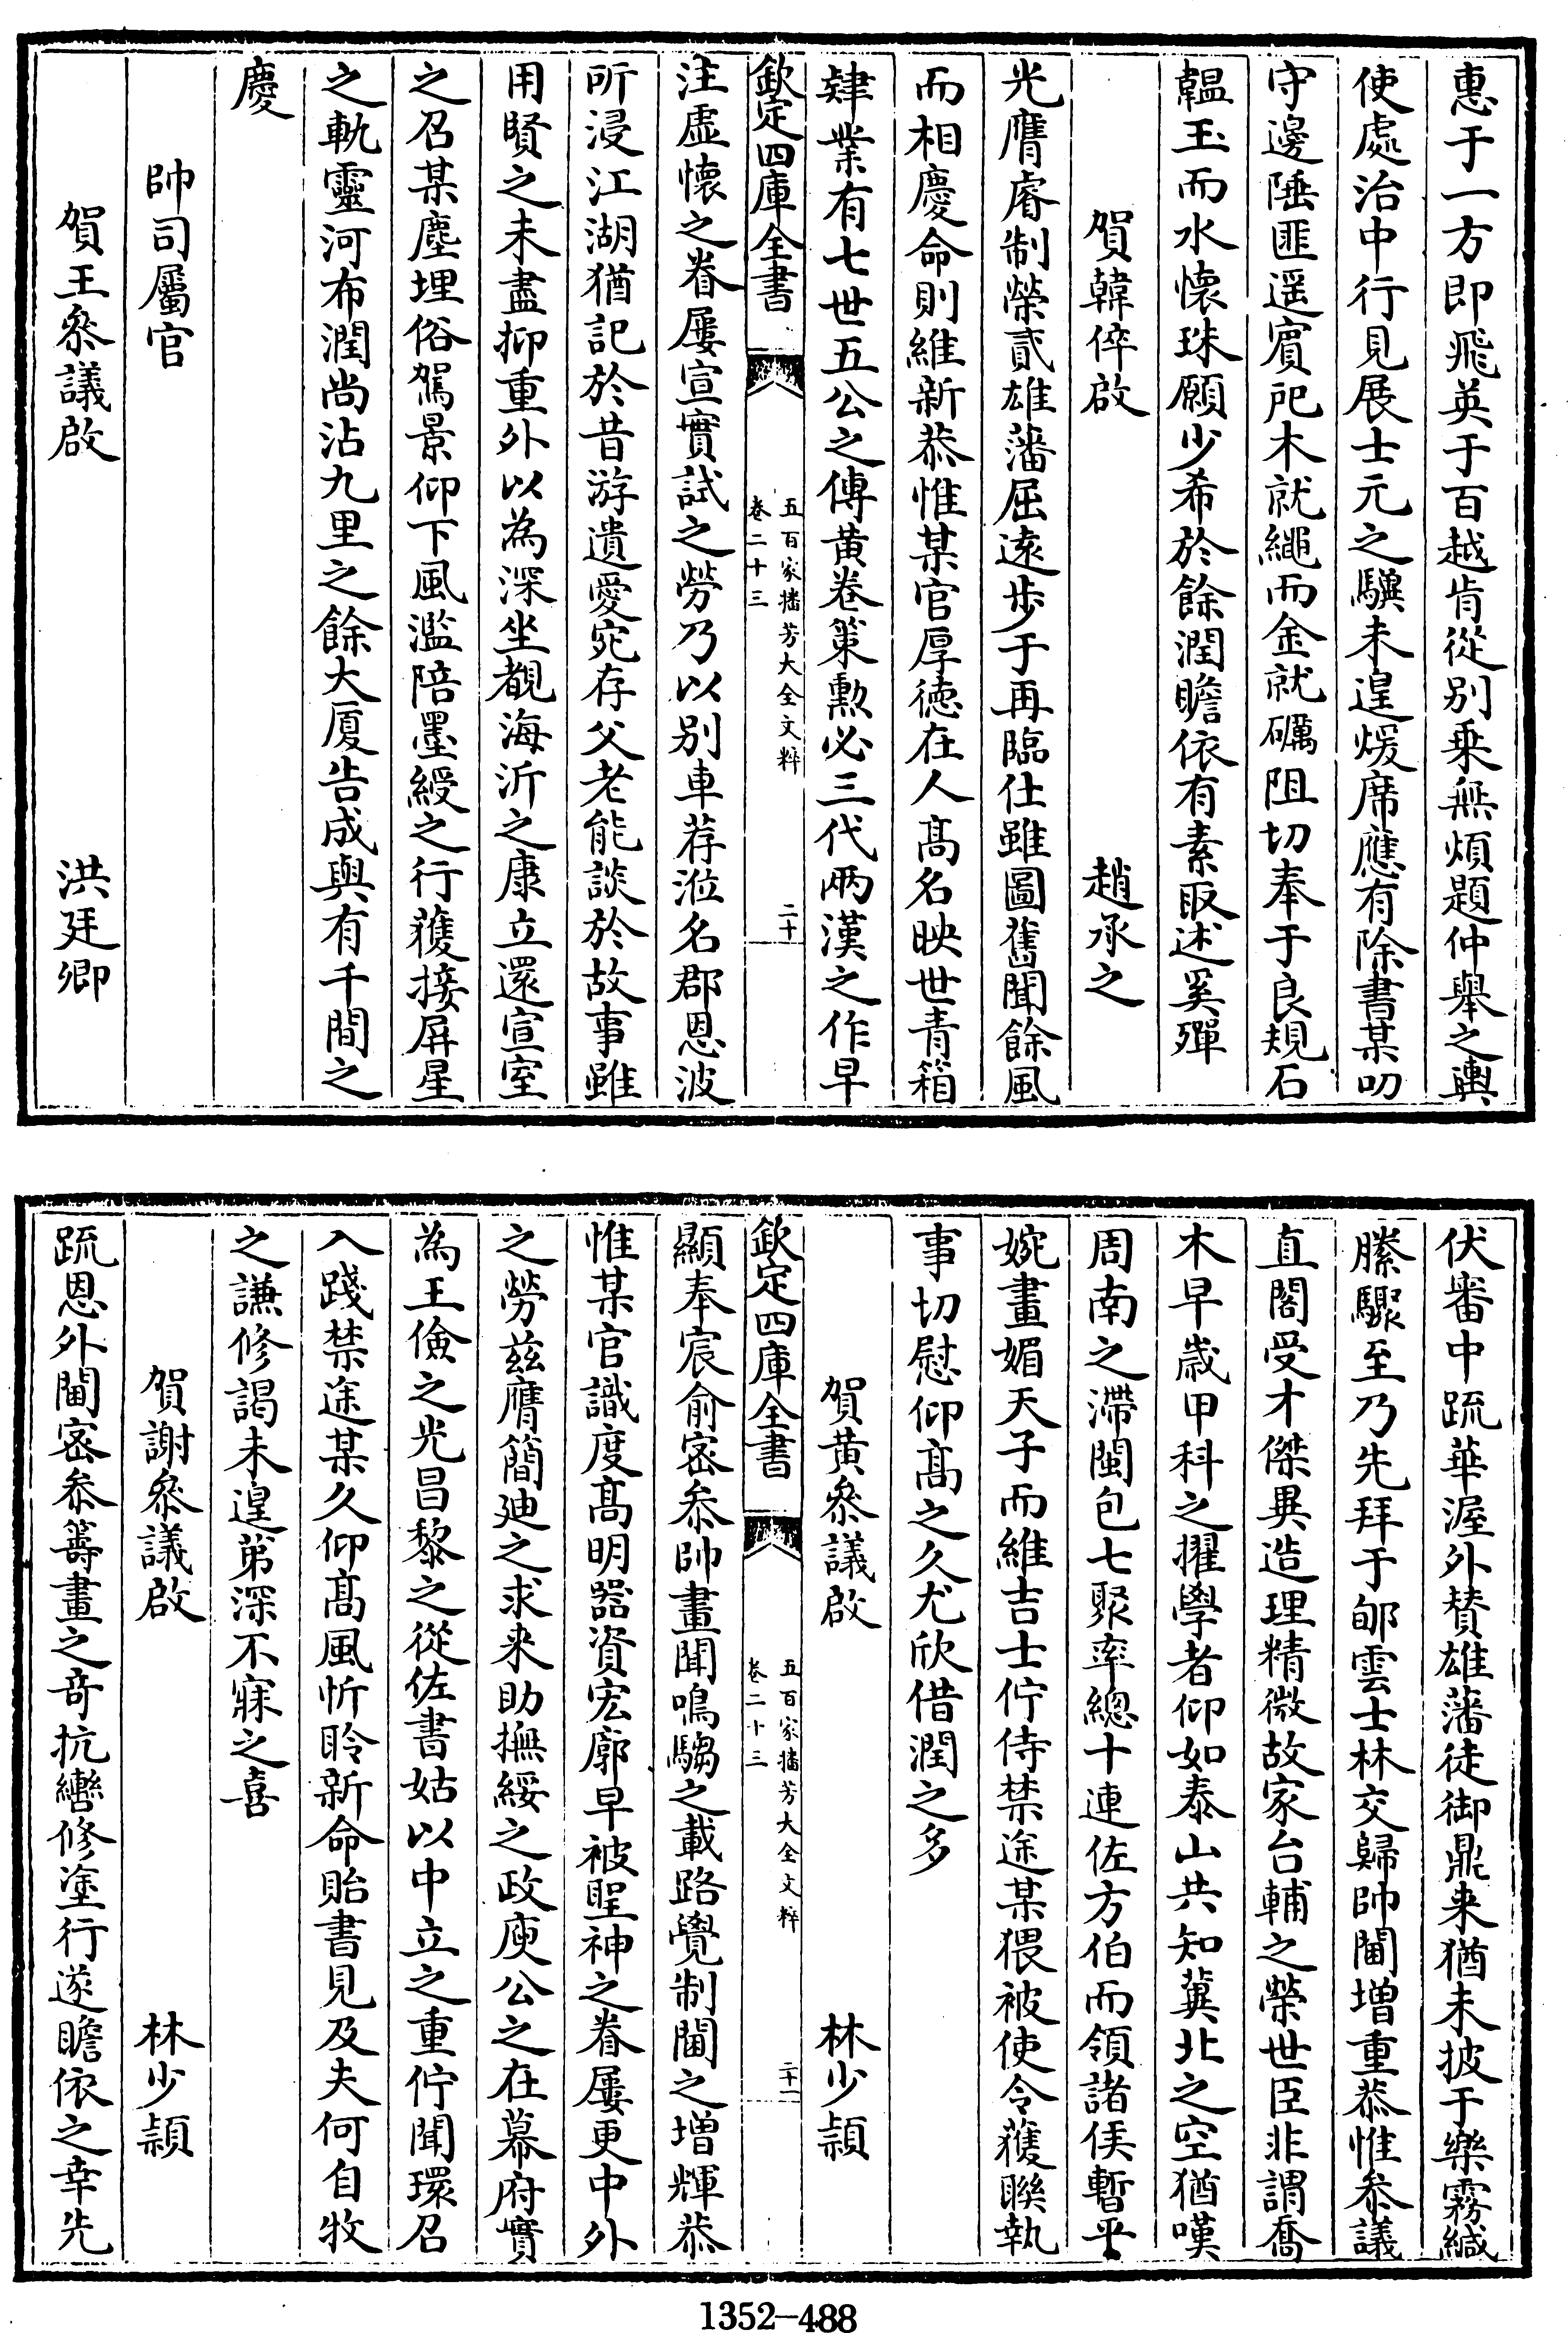 惠于一方即飛英于百越肯從别乗無煩題仲舉之輿
使處治中行見展士元之驥未遑煖席應有除書某叨
守邊陲匪遥賔戺木就繩而金就礪阻切奉于良規石
韞玉而水懐珠願少希於餘潤瞻依有素敢述奚殫
賀韓倅啟 趙承之
光膺睿制榮貳雄藩屈逺步于再臨仕雖圖舊聞餘風
而相慶命則維新恭惟某官厚徳在人髙名映世青箱
肄業有七世五公之傳黄卷策勲必三代兩漢之作早
欽定四庫全書
五百家播芳大全文粹
卷二十三
二十
注虚懐之眷屢宣實試之勞乃以别車荐涖名郡恩波
所浸江湖猶記於昔游遺愛宛存父老能談於故事雖
用賢之未盡抑重外以為深坐覩海沂之康立還宣室
之召某塵埋俗駕景仰下風濫陪墨綬之行獲接屏星
之軌靈河布潤尚沾九里之餘大厦告成與有千間之
慶
帥司屬官
賀王叅議啟 洪廷卿
伏審中疏華渥外賛雄藩徒御鼎来猶未披于樂霧緘
縢驟至乃先拜于郇雲士林交歸帥閫增重恭惟叅議
直閣受才傑異造理精微故家台輔之榮世臣非謂喬
木早嵗甲科之擢學者仰如泰山共知冀北之空猶嘆
周南之滯閩包七聚率總十連佐方伯而領諸侯暫平
婉畫媚天子而維吉士佇侍禁途某猥被使令獲聨執
事切慰仰髙之久尤欣借潤之多
賀黄叅議啟 林少頴
欽定四庫全書
五百家播芳大全文粹
卷二十三
二十一
顯奉宸俞宻叅帥畫聞鳴騶之載路覺制閫之増輝恭
惟某官識度髙明器資宏廓早被聖神之眷屢更中外
之勞兹膺簡廸之求来助撫綏之政庾公之在幕府實
為王儉之光昌黎之從佐書姑以中立之重佇聞環召
入踐禁途某久仰髙風忻聆新命貽書見及夫何自牧
之謙修謁未遑第深不寐之喜
賀謝叅議啟 林少頴
疏恩外閫宻叅籌畫之竒抗轡修塗行遂瞻依之幸先
1352-488